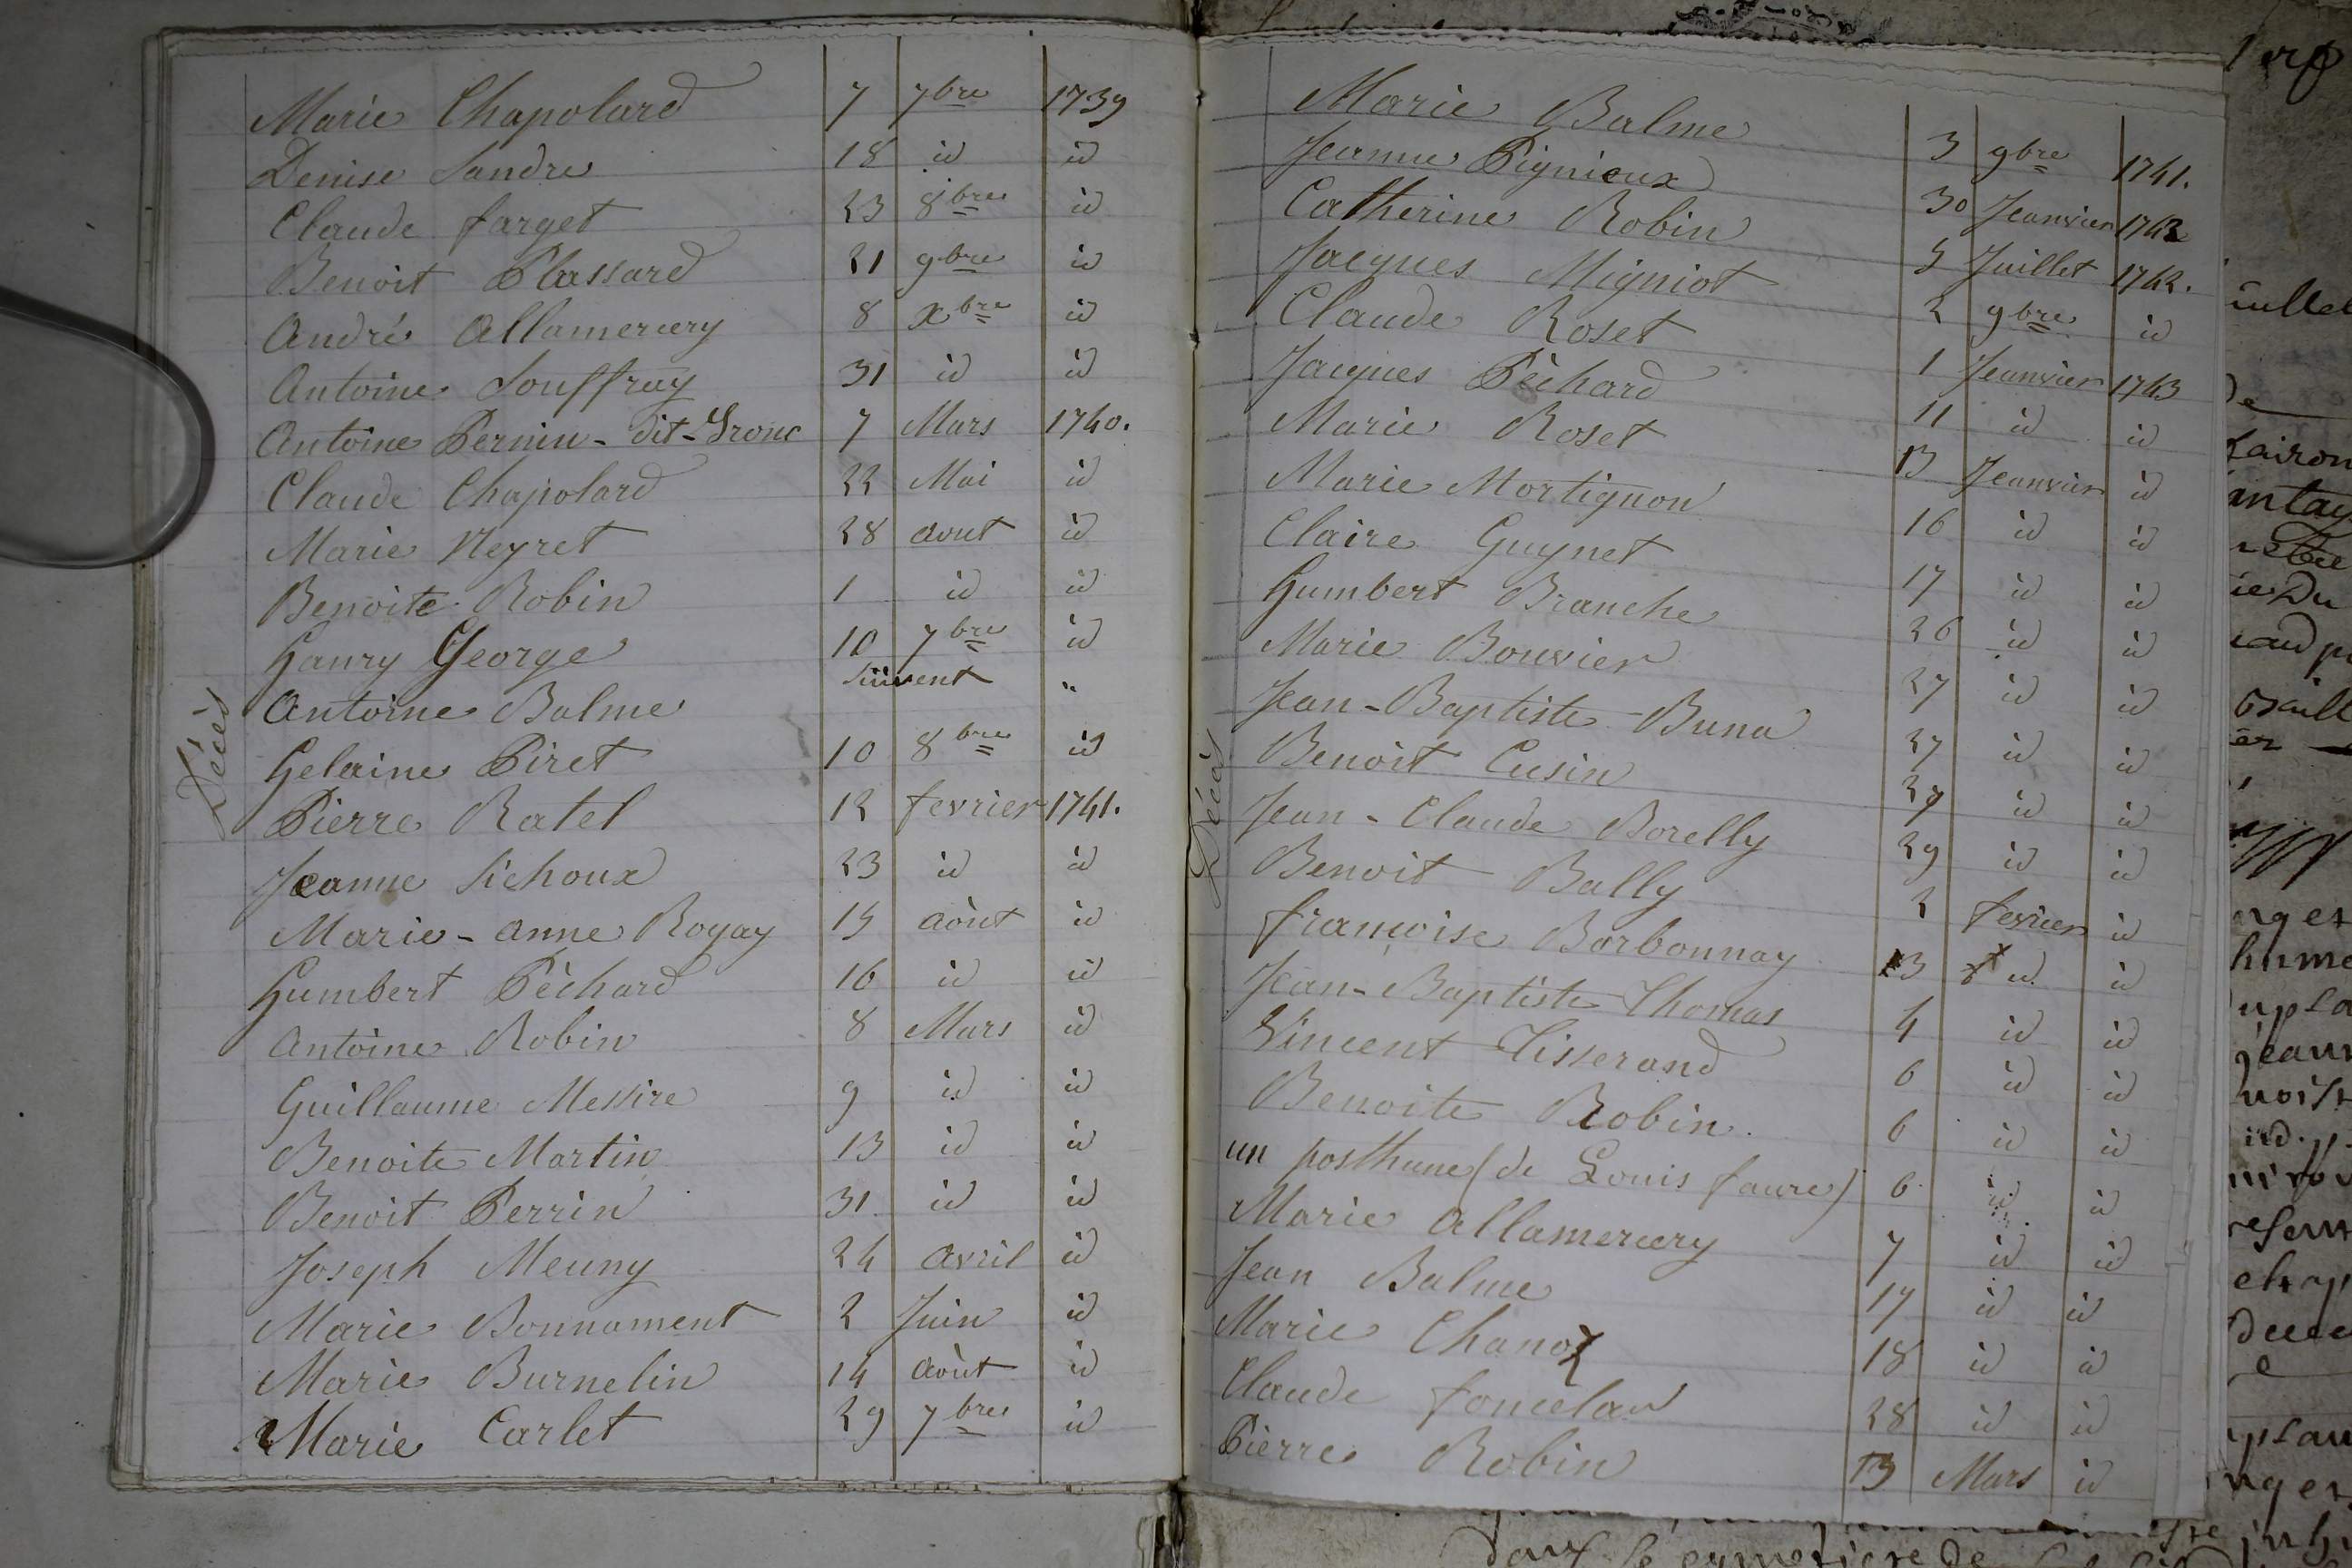 Décès
Marie Chapolard 7 7bre 1739
Denise Sandre 18 id id
Claude farget 23 8bre id
Benoit Plassard 21 9bre id
André Allamercery 8 xbre id
Antoine Souffray 31 id id
Antoine Pernin - dit - 7 Mars 1740.
Claude Chapolard 22 Mai id
Marie Neyret 28 aout id
Benoite Robin 1 id id
Hanry George 10 7bre id
Antoine Balme suivent "
Gelaine Piret 10 8bre id
Pierre Ratel 12 fevrier 1741.
Jeanne Sichoux 23 id id
Marie - anne Royay 15 août id
Humbert Pèchard 16 id id
Antoine Robin 8 Mars id
Guillaume Messire 9 id id
Benoite Martin 13 id id
Benoit Perrin 31. id id
Joseph Meuny 24 avril id
Marie Bonnament 2 Juin id
Marie Burnelin 14 août id
Marie Carlet 29 7bre id
Décès
Marie Balme 3 9bre 1741.
Jeanne Pignieux 30 Jeanvier 1742
Catherine Robin 5 Juillet 1742.
Jacques Migniot 2 9bre id
Claude Roset 1 Jeanvier 1743
Jacques Pèchard 11 id id
Marie Roset 13 Jeanvier id
Marie Mortignon 16 id id
Claire Guynet 17 id id
Humbert Branche 26 id id
Marie Bouvier 27 id id
Jean - Baptiste Buna 27 id id
Benoit Cusin 27 id id
Jean - Claude Borelly 29 id id
Benoit Bally 2 fevrier id
françoise Borbonnay 3 id id
Jean - Baptiste Thomas 4 id id
Vincent Tisserand 6 id id
Benoite Robin. 6 id id
un posthume (de Louis faure) 6 id id
Marie Allamercery 7 id id
Jean Balme 17 id id
Marie Chanoz 18 id id
Claude foncelau 28 id id
Pierre Robin 13 Mars id